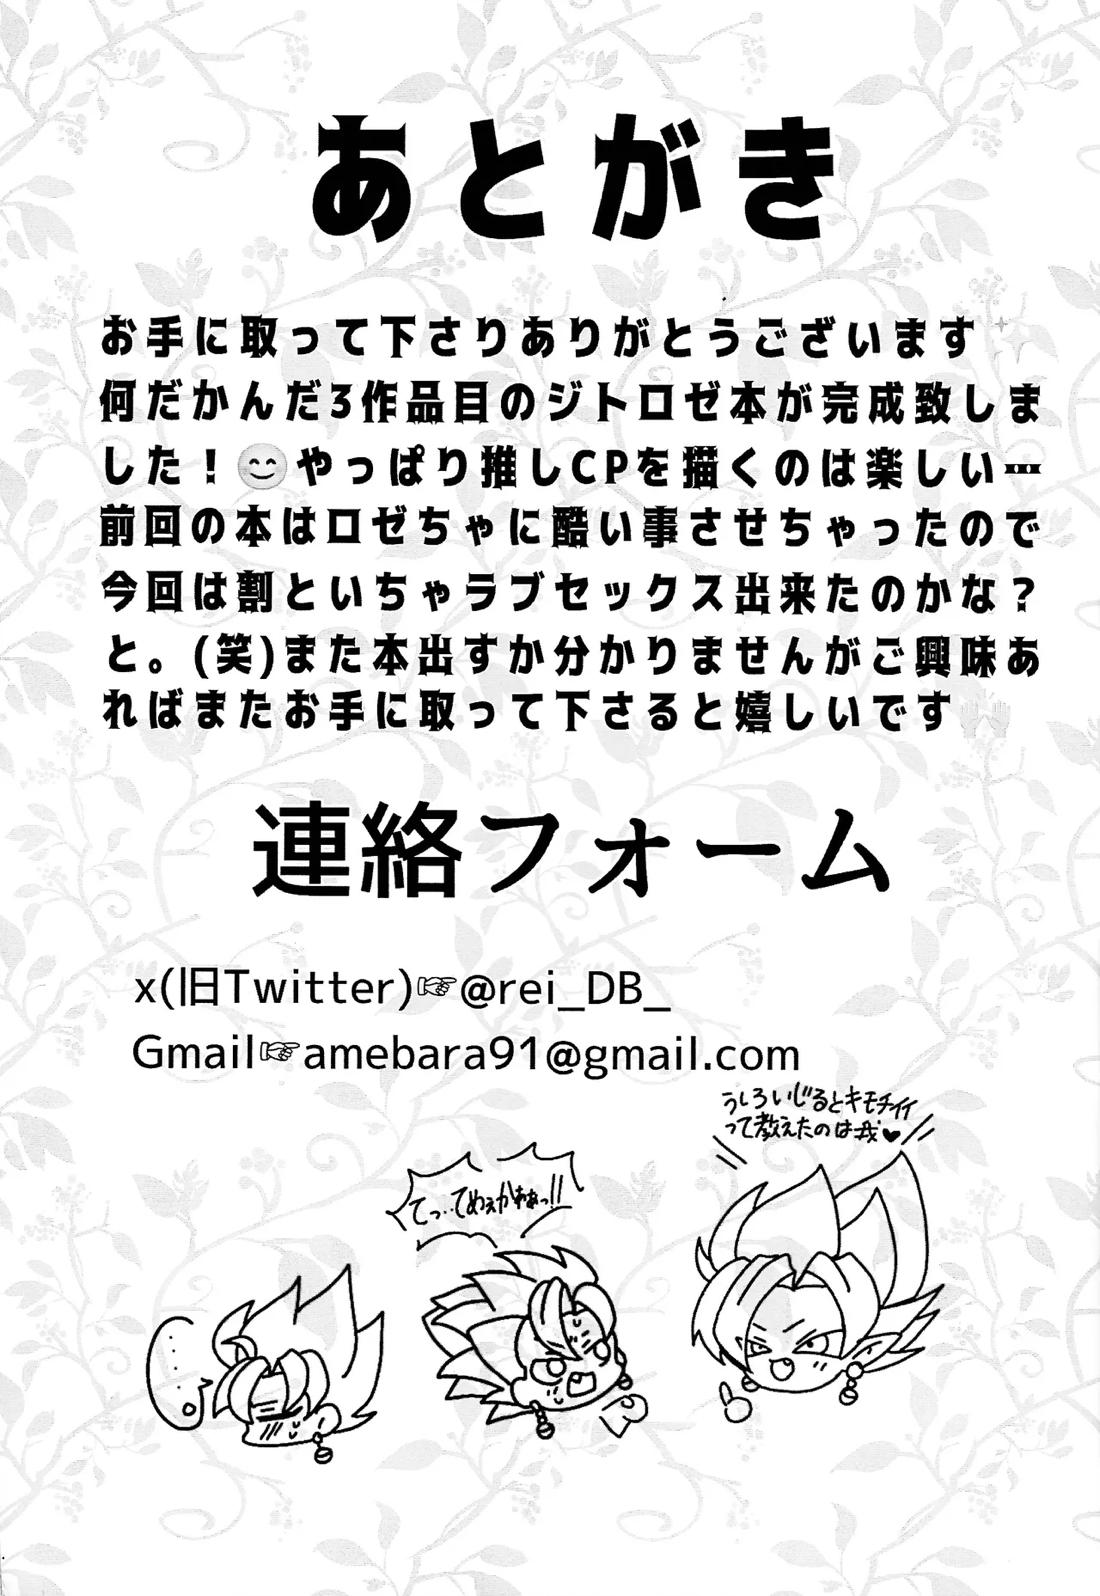 あとがき
お手に取って下さりありがとうございます✨
何だかんだ3作品目のジトロゼ本が完成致しま
した！😊やっぱり推しCPを描くのは楽しい…
前回の本はロゼちゃに酷い事させちゃったので
今回は割といちゃラブセックス出来たのかな？
と。(笑)また本出すか分かりませんがご興味あ
ればまたお手に取って下さると嬉しいです🙌
連絡フォーム
x(旧Twitter)☞@rei_DB_
Gmail☞amebara91@gmail.com
うしろいじるとキモチイイ
って教えたのは我♥
てっ…てめぇかぁぁっ!!
……。